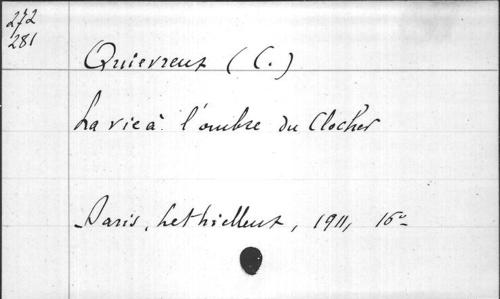 272
281
Quievreux (C.)
La vie à l'ombre du Clocher
Paris, Lethielleux, 1911, 16°